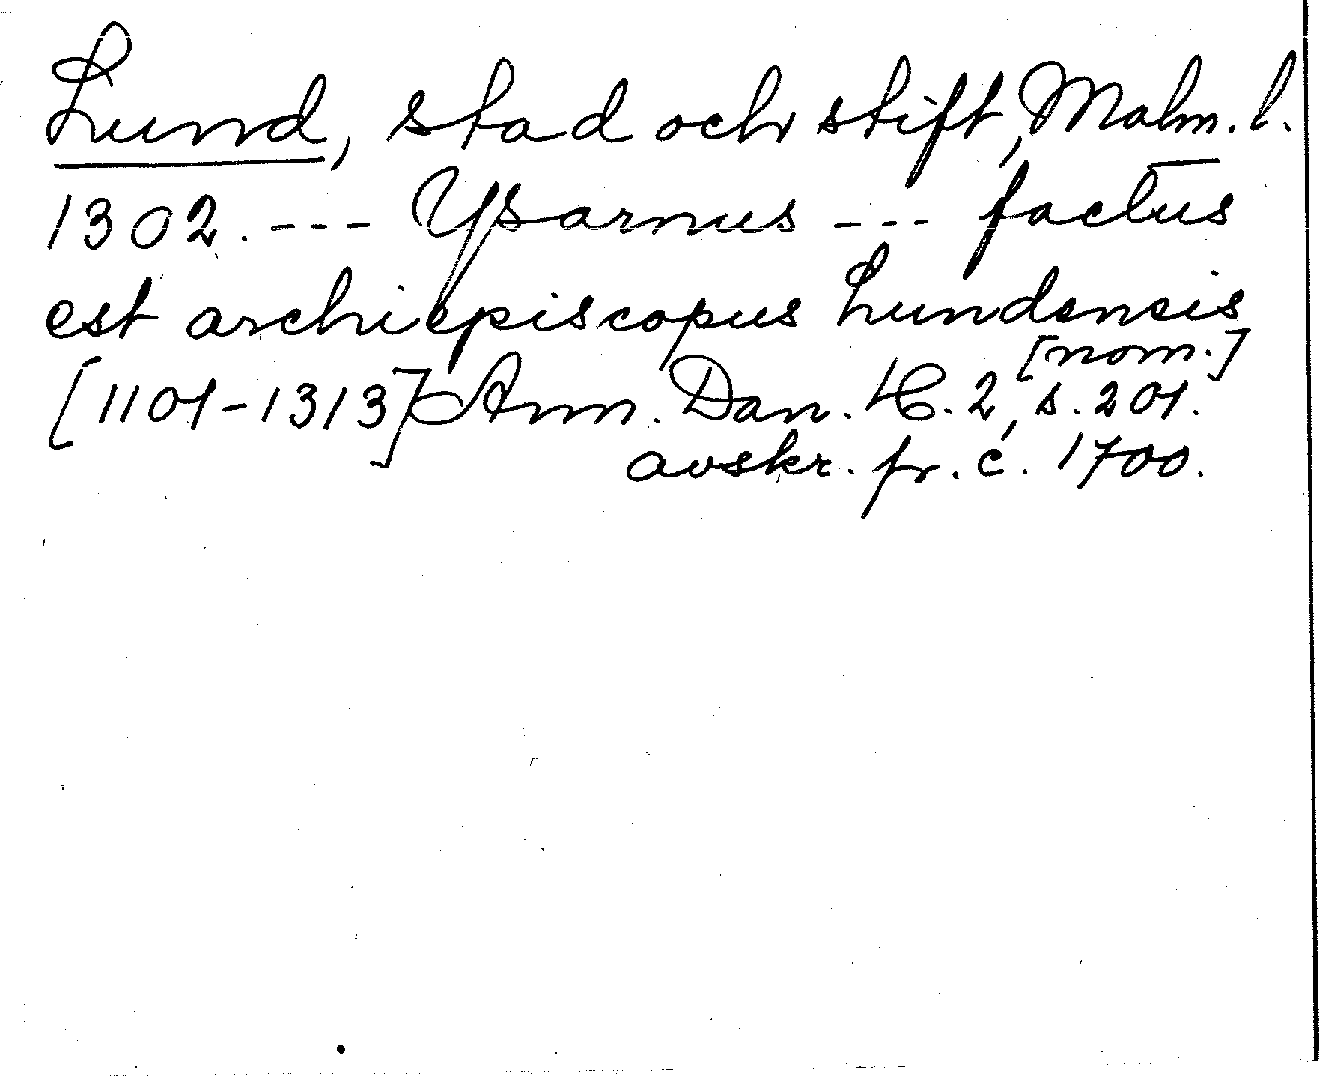 Lund, stad och stift, Malm. l.
1302. --- Ysarnus --- factus
est archiepiscopus Lundensis
[nom.]
[1101-1313] Ann. Dan. H. 2, s. 201.
avskr. fr. c. 1700.